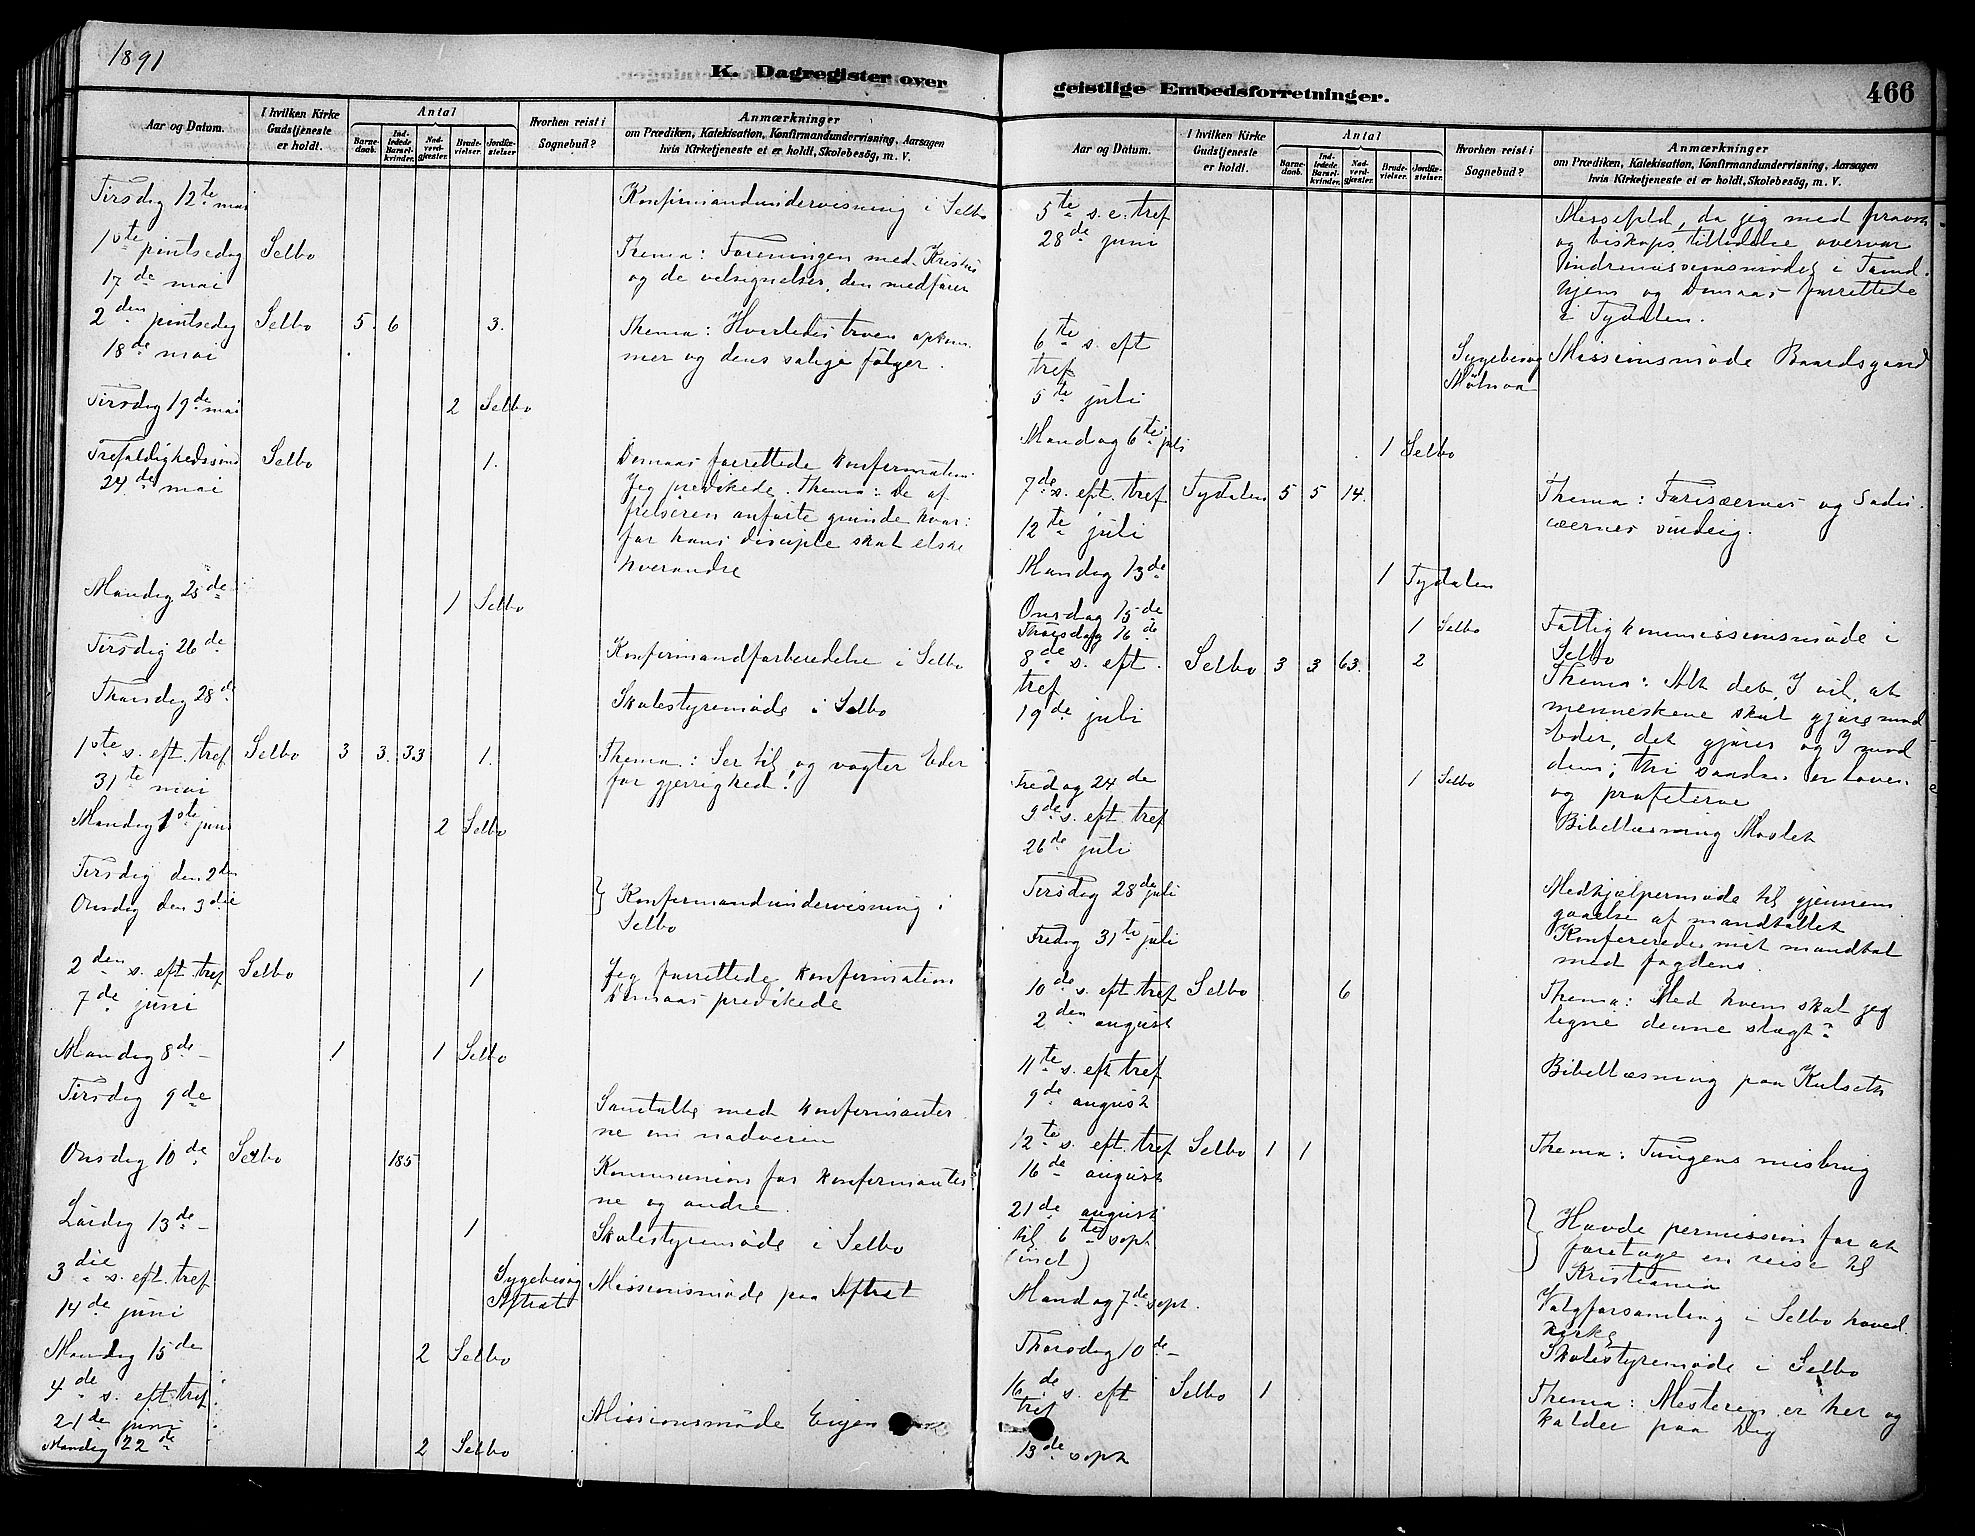 1891
K. Dagregister over
Aar og Datum.
I hvilken Kirke Gudstjeneste er holdt.
Antal
Barnedaab.
Indledede Barselkvinder.
Nadverdgjester.
Brudevielser.
Jordfæstelser
Hvorhen reist i Sognebud?
Anmærkninger
om Prædiken, Katekisation, Konfirmandundervisning, Aarsagen
hvis Kirketjeneste et er holdt, Skolebesög, m. V.
Tirsdag 12te mai Konfirmandundervisning i Selbo
1ste pintsedag Selbo Thema: Foreningen med Kristus
17de mai og de velsignelser, den medfører
2den pintsedag Selbo 5. 6 3. Thema: Hvorledes troen opkom-
18de mai mer og dens salige følger.
Tirsdag 19de mai 2 Selbo
Trefoldighedssønd Selbo 1. Domaas forrettede konfirmation.
24de mai Jeg prædikede. Thema: De af
frelseren anførte grunde hvor:
for hans disciple skal elske
hverandre
Mandag 25de 1 Selbo
Tirsdag 26de Konfirmandforberedelse i Selbo
Thorsdag 28de Skolestyremøde i Selbo
1ste s. eft. tref Selbo 3 3. 33 1. Thema: Ser til og vogter Eder
31te mai for gjerrighed!
Mandag 1ste juni 2 Selbo
Tirsdag den 2den
Onsdag den 3die } Konfirmandundervisning i
Selbo
2den s. eft. tref Selbo 1 Jeg forrettede konfirmation
7de juni Domaas prædikede
Mandag 8de 1 1 Selbo
Tirsdag 9de Samtalte med konfirmanter
ne om nadveren
Onsdag 10de Selbo 185 Kommunion for konfirmanter
ne og andre.
Lørdag 13de 1 Skolestyremøde i Selbo
3die s. eft. tref Sygebesøg Missionsmøde paa Aftret
14de juni Aftret
Mandag 15de 2 Selbo
4de s. eft. tref
21de juni Missionsmøde
Mandag 22de 2 Selbo
geistlige Embedsforretninger.
466
Aar og Datum.
I hvilken Kirke Gudstjeneste er holdt.
Antal
Barnedaab.
Indledede Barselkvinder.
Nadverdgjester.
Brudevielser.
Jordfæstelser.
Hvorhen reist i Sognebud?
Anmærkninger
om Prædiken, Katekisation, Konfirmandundervisning, Aarsagen
hvis Kirketjeneste et er holdt, Skolebesög, m. V.
5te s. e. tref Messefald, da jeg med provst
28de juni og biskops tilladelse overvar
indremissionsmødet i Trond-
hjem og Domaas forrettede
i Tydalen.
6te s. eft Sygebesøg Missionsmøde Baardsgaard
tref
5te juli
Mandag 6te juli 1 Selbo
7de s. eft. tref Tydalen 5 5 14. Thema: Farisæernes og Sadu-
12te juli cæernes surdeig.
Mandag 13de 1 Tydalen
Onsdag 15de
Thorsdag 16de 1 Selbo Fattigkommissionsmøde i
Selbo
8de s. eft. Selbo 3 3 63. 2 Thema: Alt det, I vil, at
tref menneskene skal gjøre mod
19de juli Eder, det gjører og I mod
dem; thi saadan er loven
og profeterne
Fredag 24de 1 Selbo
9de s. eft. tref Bibellæsning Moslet
26de juli
Tirsdag 28de juli Medhjælpermøde til gjennem
gaaelse af mandtallet
Fredag 31te juli Konfererede mit mandtal
med fogdens.
10de s. eft. tref Selbo 6 Thema: Med hvem skal jeg
2den august ligne denne slægt?
11te s. eft. tref Bibellæsning paa Kulseth
9de august
12te s. eft. tref Selbo 1 1 Thema: Tungens misbrug
16de august
21de august
til 6te sept } Havde permission for at
(incl) foretage en reise til
Kristiania
Mandag 7de sept. Valgforsamling i Selbo hoved
kirke
Thorsdag 10de Skolestyremøde i Selbo
16de s. eft Selbo 1 Thema: Mesteren er her og
tref kalder paa Dig
13de sept